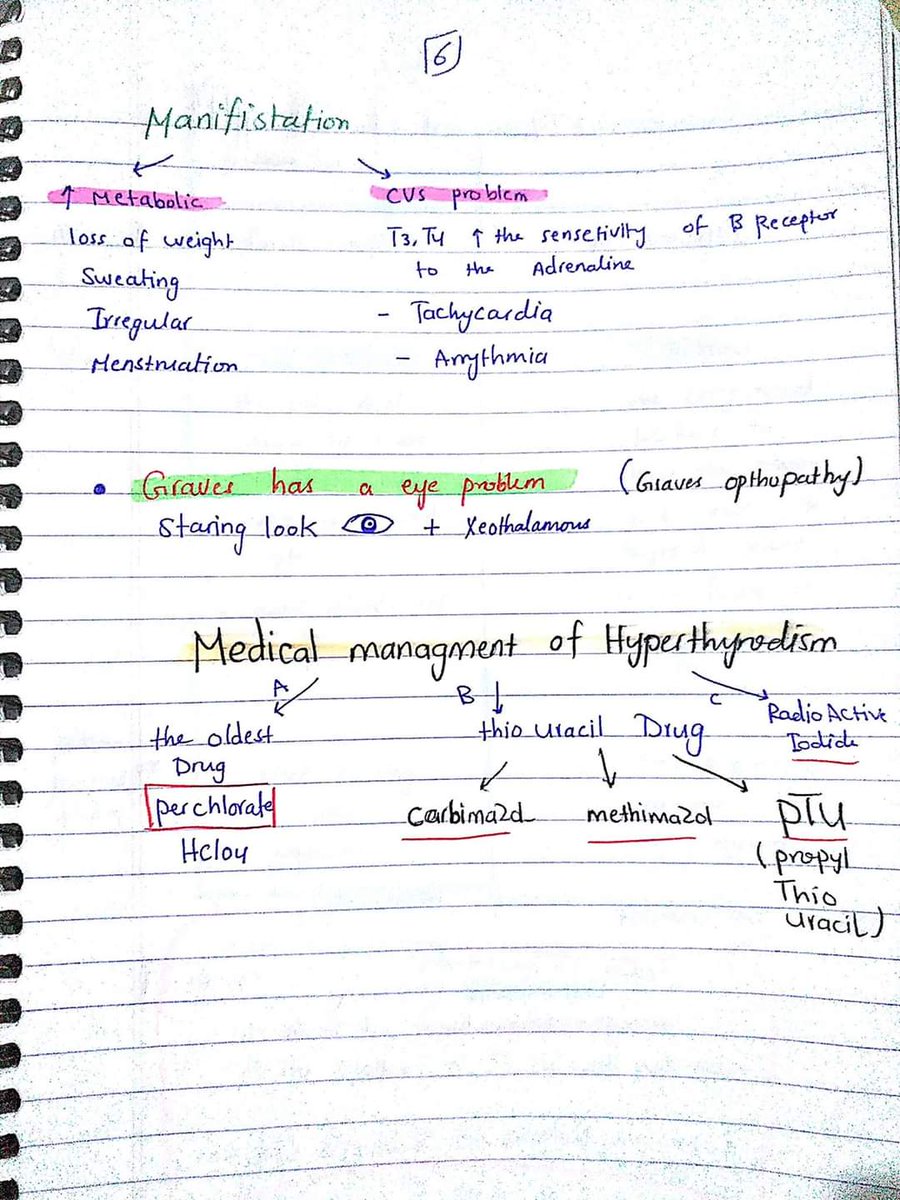 6
Manifistation
↑ Metabolic
loss of weight
Sweating
Irregular
Menstruation
CVS problem
T3, T4 ↑ the sensetivity of B Receptor
to the Adrenaline
- Tachycardia
- Arrythmia
• Graves has a eye problem (Graves opthupathy)
Staring look + Xeothalamous
Medical managment of Hyperthyrodism
A
the oldest
Drug
perchlorate
HClO4
B
thio uracil Drug
carbimazol
methimazol
PTU
(propyl
Thio
uracil)
C
Radio Active
Iodide